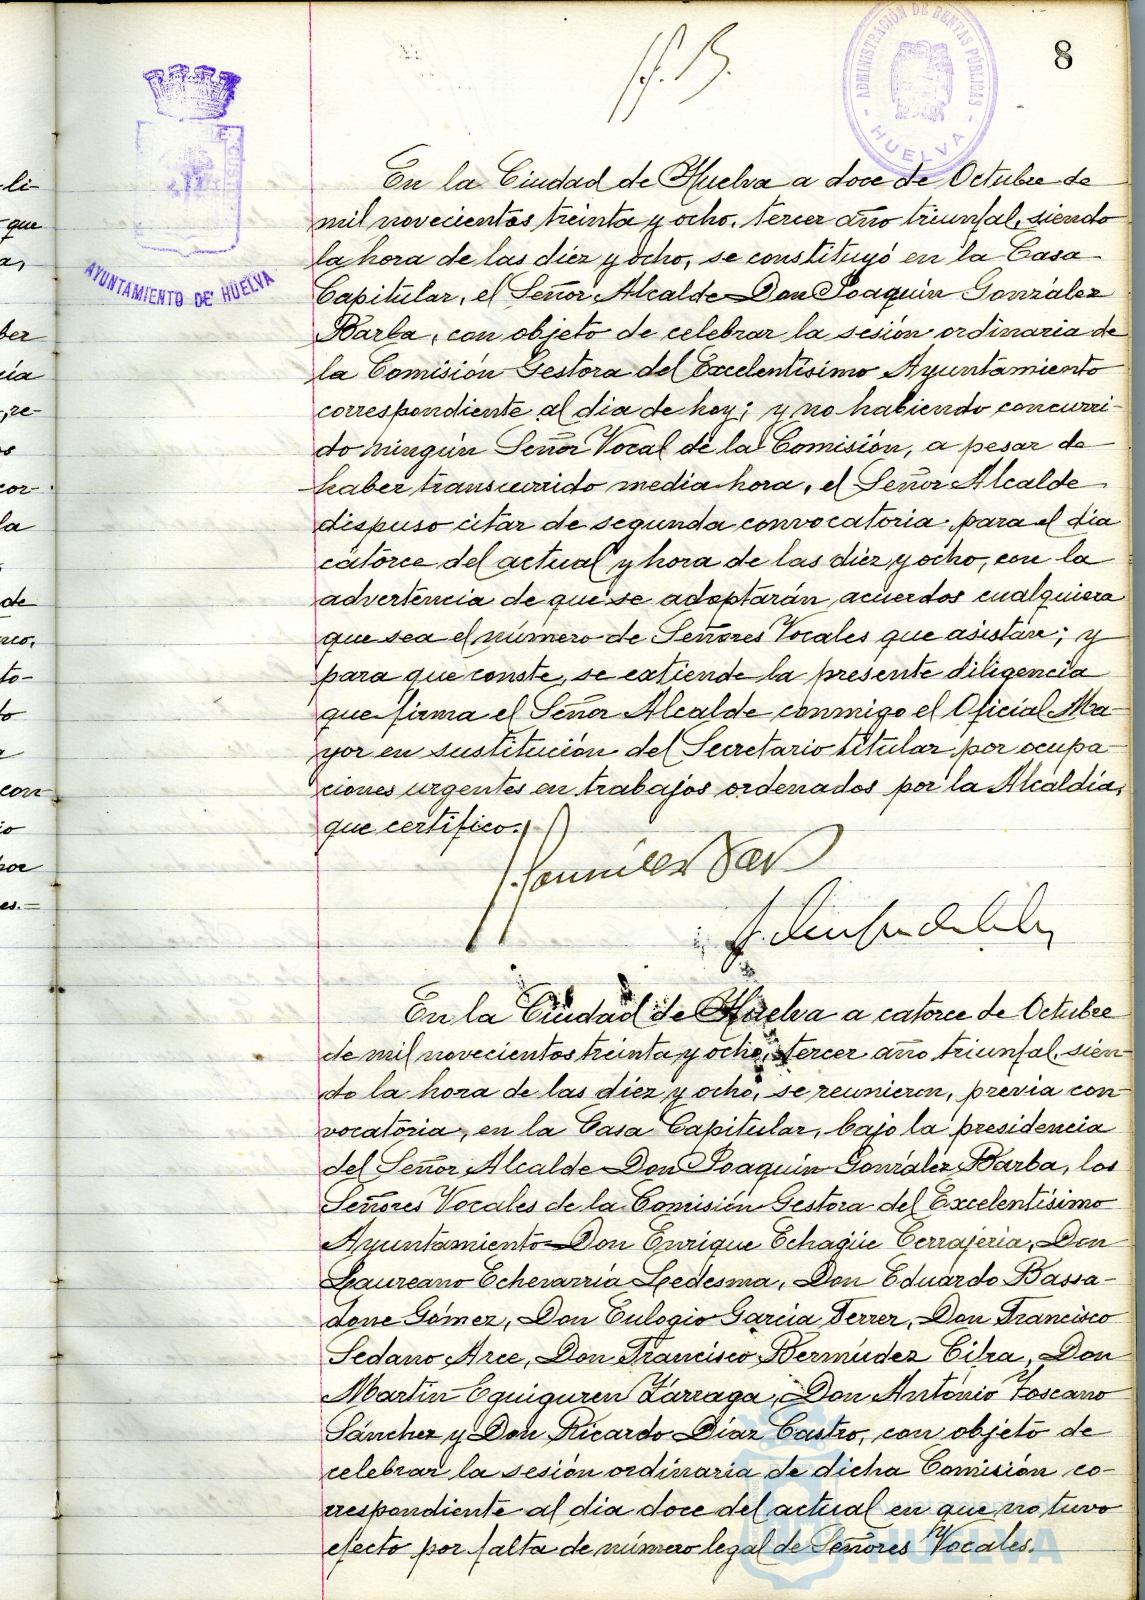 8
ADMINISTRACIÓN DE RENTAS PÚBLICAS
- HUELVA -
AYUNTAMIENTO DE HUELVA
En la Ciudad de Huelva a doce de Octubre de
mil novecientos treinta y ocho, tercer año triunfal, siendo
la hora de las diez y ocho, se constituyó en la Casa
Capitular, el Señor Alcalde Don Joaquín González
Barba, con objeto de celebrar la sesión ordinaria de
la Comisión Gestora del Excelentísimo Ayuntamiento
correspondiente al dia de hoy; y no habiendo concurri-
do ningún Señor Vocal de la Comisión, a pesar de
haber transcurrido media hora, el Señor Alcalde
dispuso citar de segunda convocatoria para el dia
catorce del actual y hora de las diez y ocho, con la
advertencia de que se adoptarán acuerdos cualquiera
que sea el número de Señores Vocales que asistan; y
para que conste, se extiende la presente diligencia
que firma el Señor Alcalde conmigo el Oficial Ma-
yor en sustitución del Secretario titular por ocupa-
ciones urgentes en trabajos ordenados por la Alcaldía,
que certifico.
En la Ciudad de Huelva a catorce de Octubre
de mil novecientos treinta y ocho, tercer año triunfal, sien-
do la hora de las diez y ocho, se reunieron, previa con-
vocatoria, en la Casa Capitular, bajo la presidencia
del Señor Alcalde Don Joaquín González Barba, los
Señores Vocales de la Comisión Gestora del Excelentísimo
Ayuntamiento Don Enrique Echagüe Cerrajería, Don
Laureano Echevarría Ledesma, Don Eduardo Bassa-
done Gómez, Don Eulogio García Ferrer, Don Francisco
Sedano Arce, Don Francisco Bermúdez Cilra, Don
Martín Eguiguren Zárraga, Don António Toscano
Sánchez y Don Ricardo Díaz Castro, con objeto de
celebrar la sesión ordinaria de dicha Comisión co-
rrespondiente al dia doce del actual en que no tuvo
efecto por falta de número legal de Señores Vocales.
HUELVA